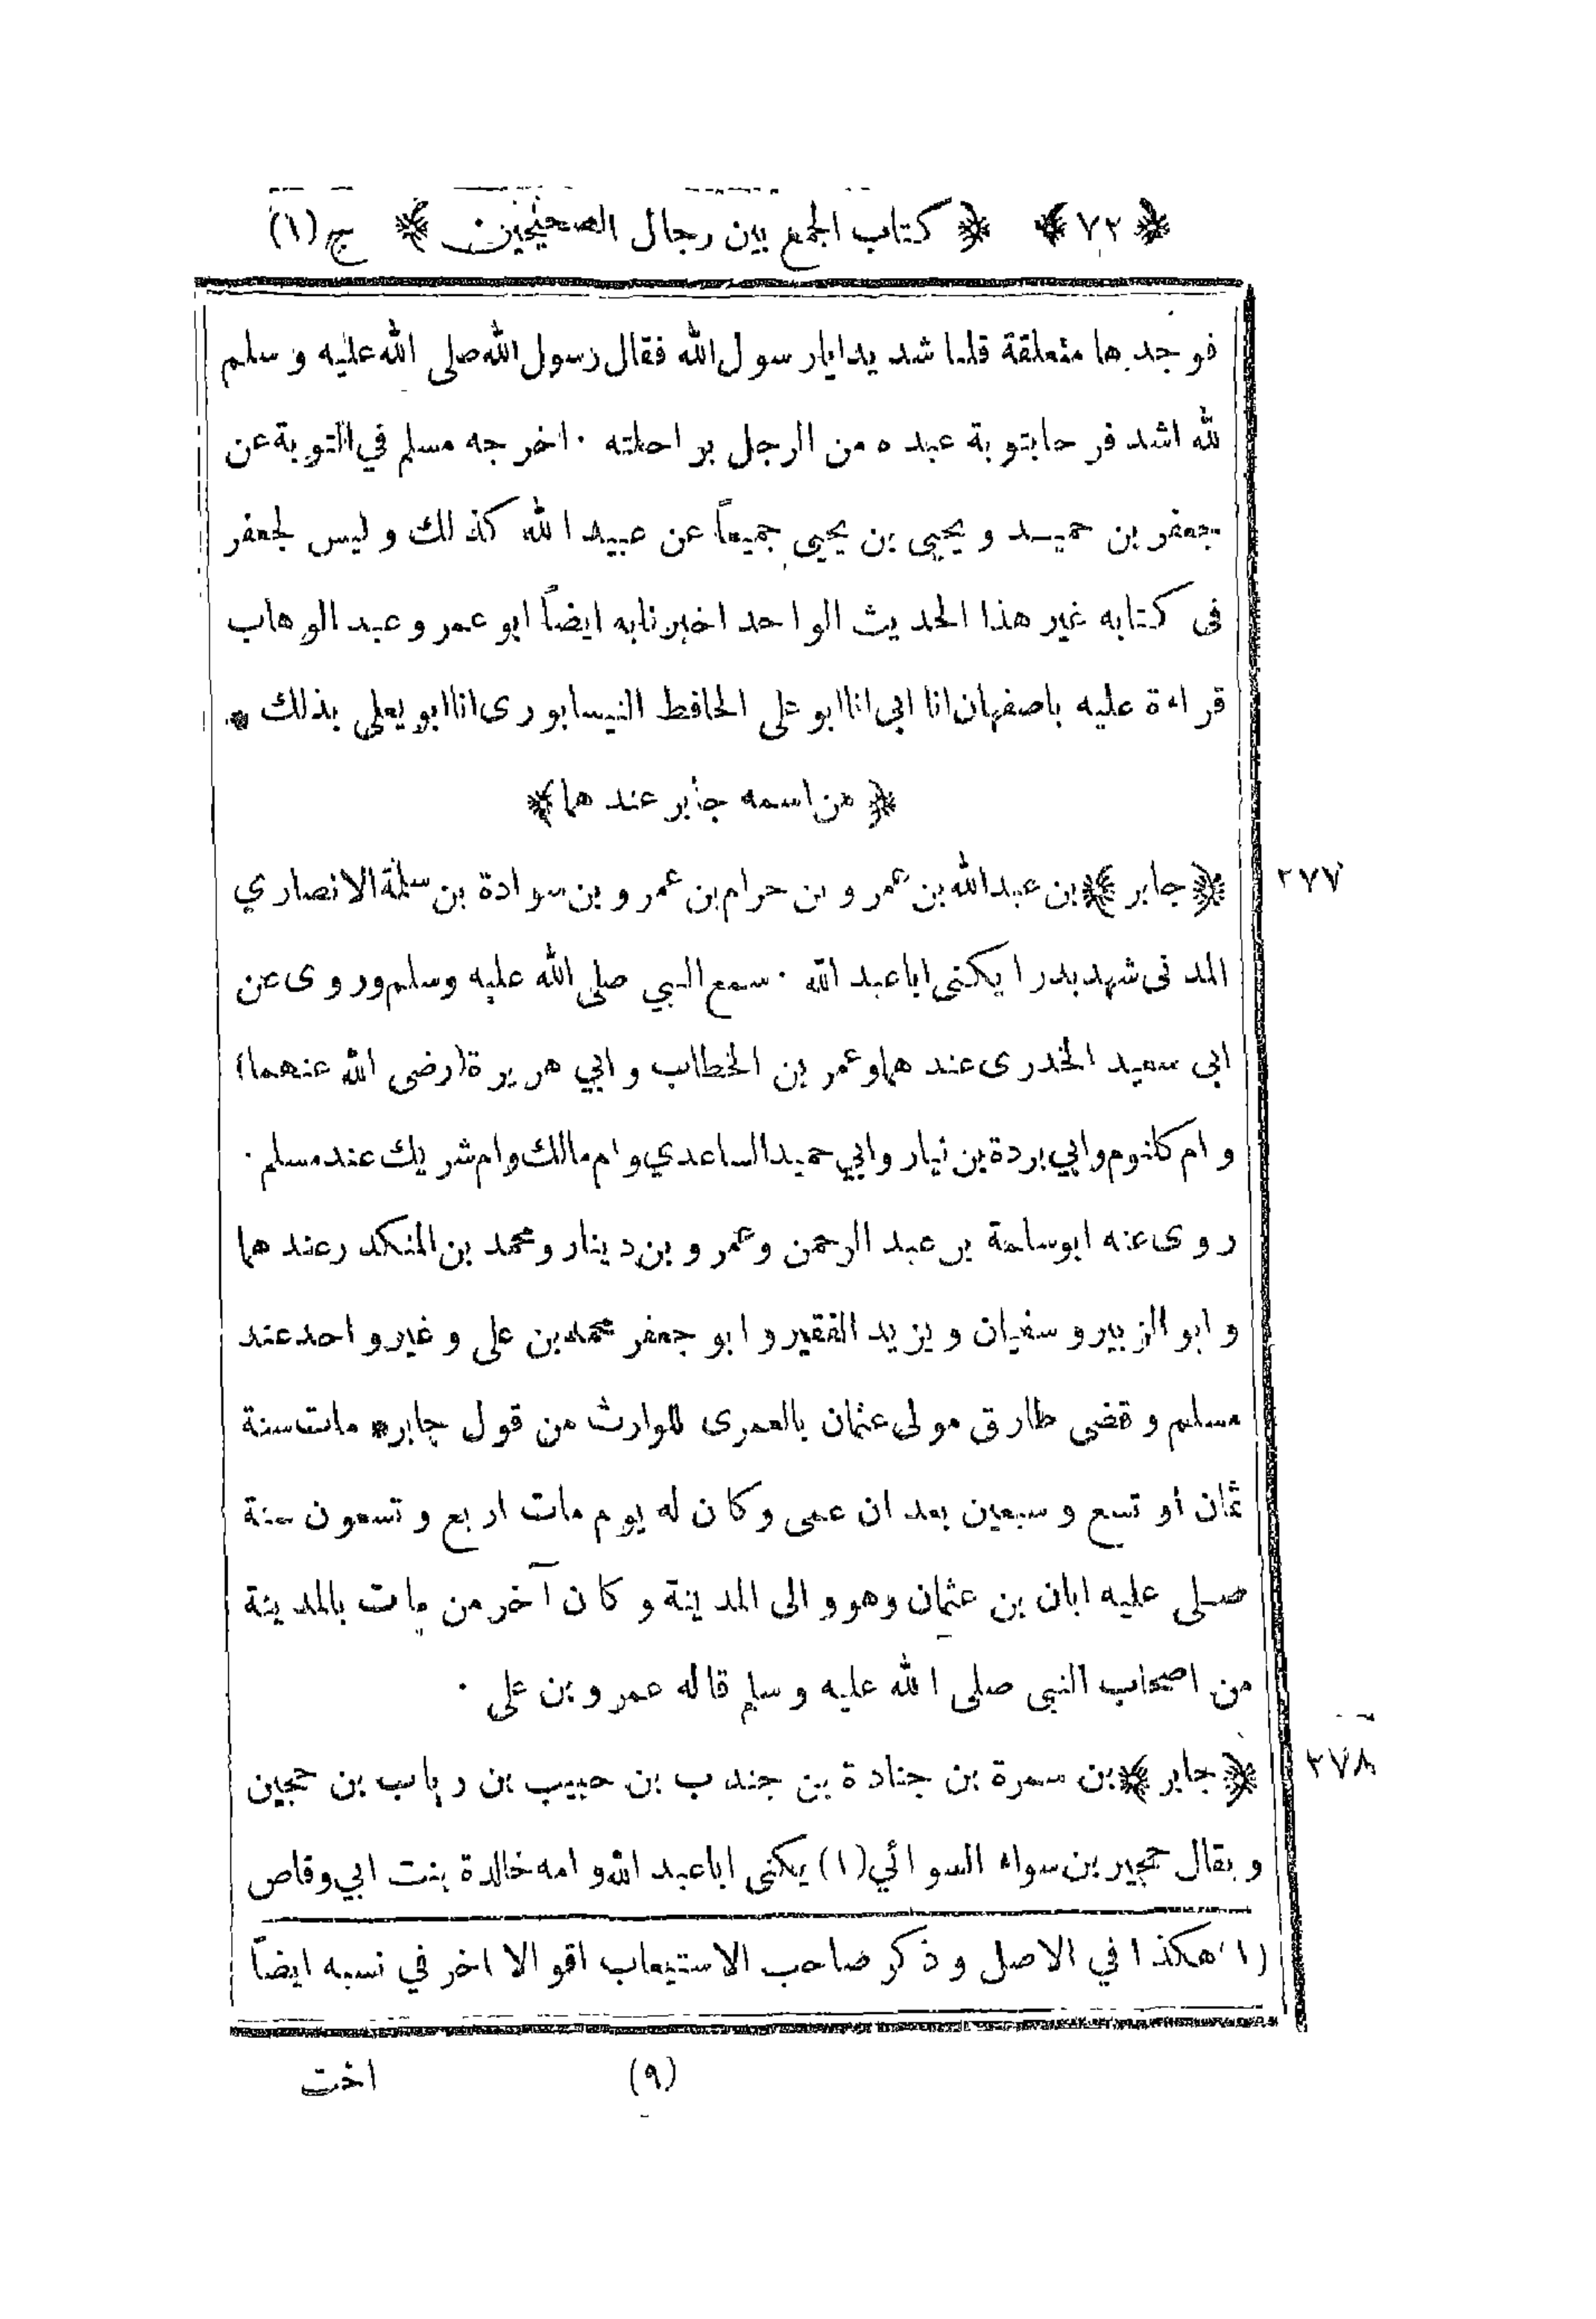 ﴿ ٧٢ ﴾ ﴿ كتاب الجمع بين رجال الصحيحين ﴾ ج (١)
فوجدها متعلقة قلنا شديدا يارسول الله فقال رسول الله صلى الله عليه وسلم
لله اشد فرحا بتوبة عبده من الرجل براحلته ٠ اخرجه مسلم في التوبة عن
جعفر بن حميد و يحيى بن يحيى جميعاً عن عبيد الله كذلك وليس لجعفر
فى كتابه غير هذا الحديث الواحد اخبرنا به ايضاً ابو عمرو عبد الوهاب
قراءة عليه باصفهان انا ابى انا ابو على الحافظ النيسابورى انا ابو يعلى بذلك *
﴿ من اسمه جابر عندهما ﴾
٢٧٧ ﴿ جابر ﴾ بن عبد الله بن عمرو بن حرام بن عمرو بن سوادة بن سلمة الانصاري
المدنى شهد بدرا يكنى ابا عبد الله ٠ سمع النبي صلى الله عليه وسلم وروى عن
ابى سعيد الخدرى عندهما و عمر بن الخطاب و ابي هريرة (رضى الله عنهما)
و ام كلثوم وابي بردة بن نيار وابي حميد الساعدي وام مالك وام شريك عند مسلم ٠
روى عنه ابو سلمة بن عبد الرحمن وعمرو بن دينار و محمد بن المنكدر عندهما
و ابو الزبير و سفيان و يزيد الفقير و ابو جعفر محمد بن على و غير واحد عند
مسلم و قضى طارق مولى عثمان بالعمرى للوارث من قول جابر * مات سنة
ثمان أو تسع و سبعين بعد ان عمى و كان له يوم مات اربع و تسعون سنة
صلى عليه ابان بن عثمان وهو والى المدينة و كان آخر من مات بالمدينة
من اصحاب النبى صلى الله عليه و سلم قاله عمرو بن على ٠
٢٧٨ ﴿ جابر ﴾ بن سمرة بن جنادة بن جندب بن حبيب بن رباب بن حجين
و يقال حجير بن سواء السوائي (١) يكنى ابا عبد الله و امه خالدة بنت ابي وقاص
(١) هكذا في الاصل و ذكر صاحب الاستيعاب اقوالا اخر في نسبه ايضاً
(٩) اخت